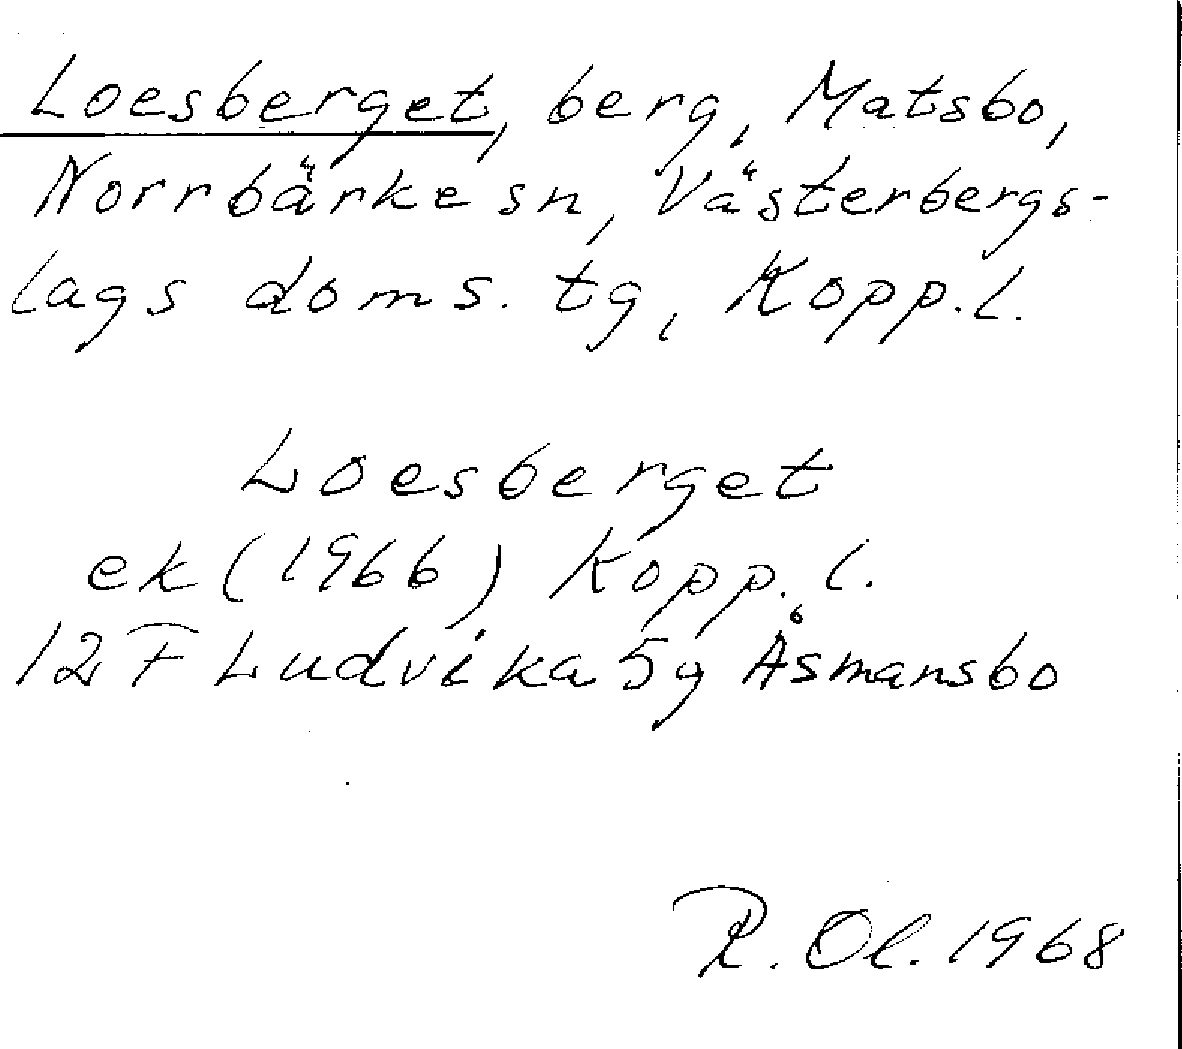 Loesberget, berg, Matsbo,
Norrbärke sn, Västerbergs-
lags doms. tg, Kopp. l.
Loesberget
ek (1966) Kopp. l.
12 F Ludvika 5g Åsmansbo
R. Ol. 1968